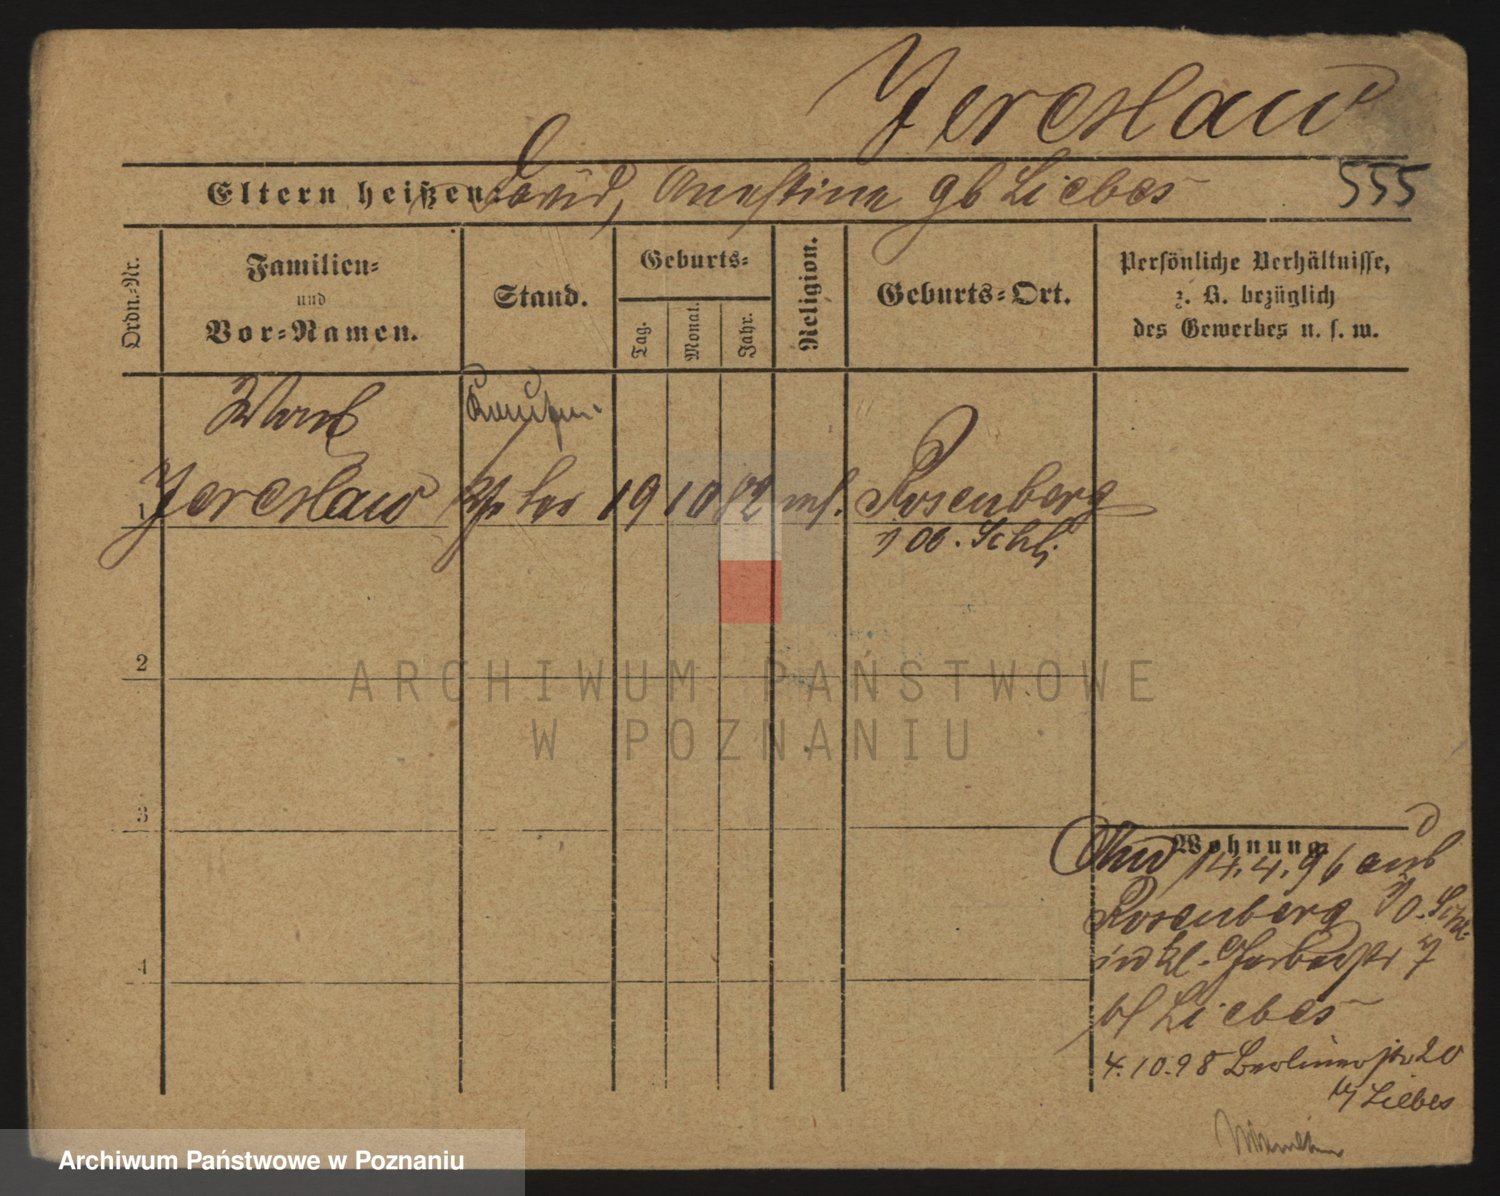 Jereslaw
Eltern heißen: David, Ernestine gb Liebes 555
Ordn.-Nr.
Familien-
und
Vor-Namen.
Stand.
Geburts-
Tag.
Monat.
Jahr.
Religion.
Geburts-Ort.
Persönliche Verhältnisse,
z. B. bezüglich
des Gewerbes u. s. w.
1 Jereslaw 19 10 82 Rosenberg
2
3
4
Wohnung
14.4.96 aus
Rosenberg
Gerberstr 7
Liebes
4.10.98 Berlinerstr 20
Liebes
ARCHIWUM PAŃSTWOWE
W POZNANIU
Archiwum Państwowe w Poznaniu